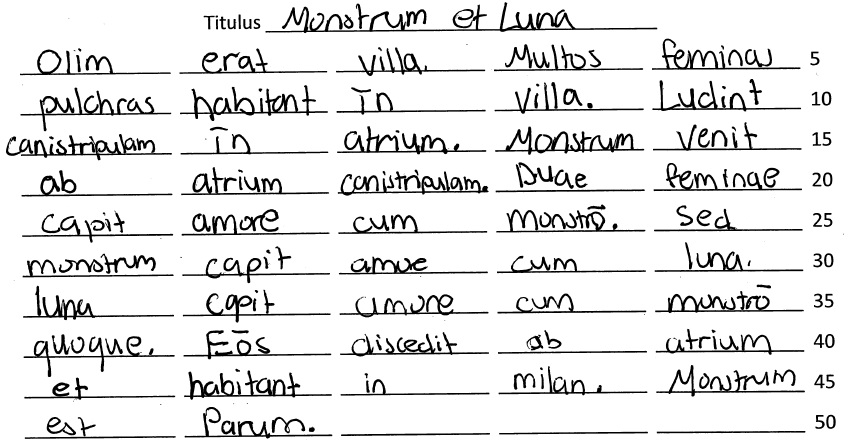 Titulus Monstrum et Luna
Olim erat villa. Multos feminas 5
pulchras habitant īn villa. Ludint 10
canistripulam īn atrium. Monstrum venit 15
ab atrium canistripulam. Duae feminae 20
capit amore cum monstrō. Sed 25
monstrum capit amoe cum luna. 30
luna capit amore cum monstrō 35
quoque. Eōs discedit ab atrium 40
et habitant in milan. Monstrum 45
est Parum. 50